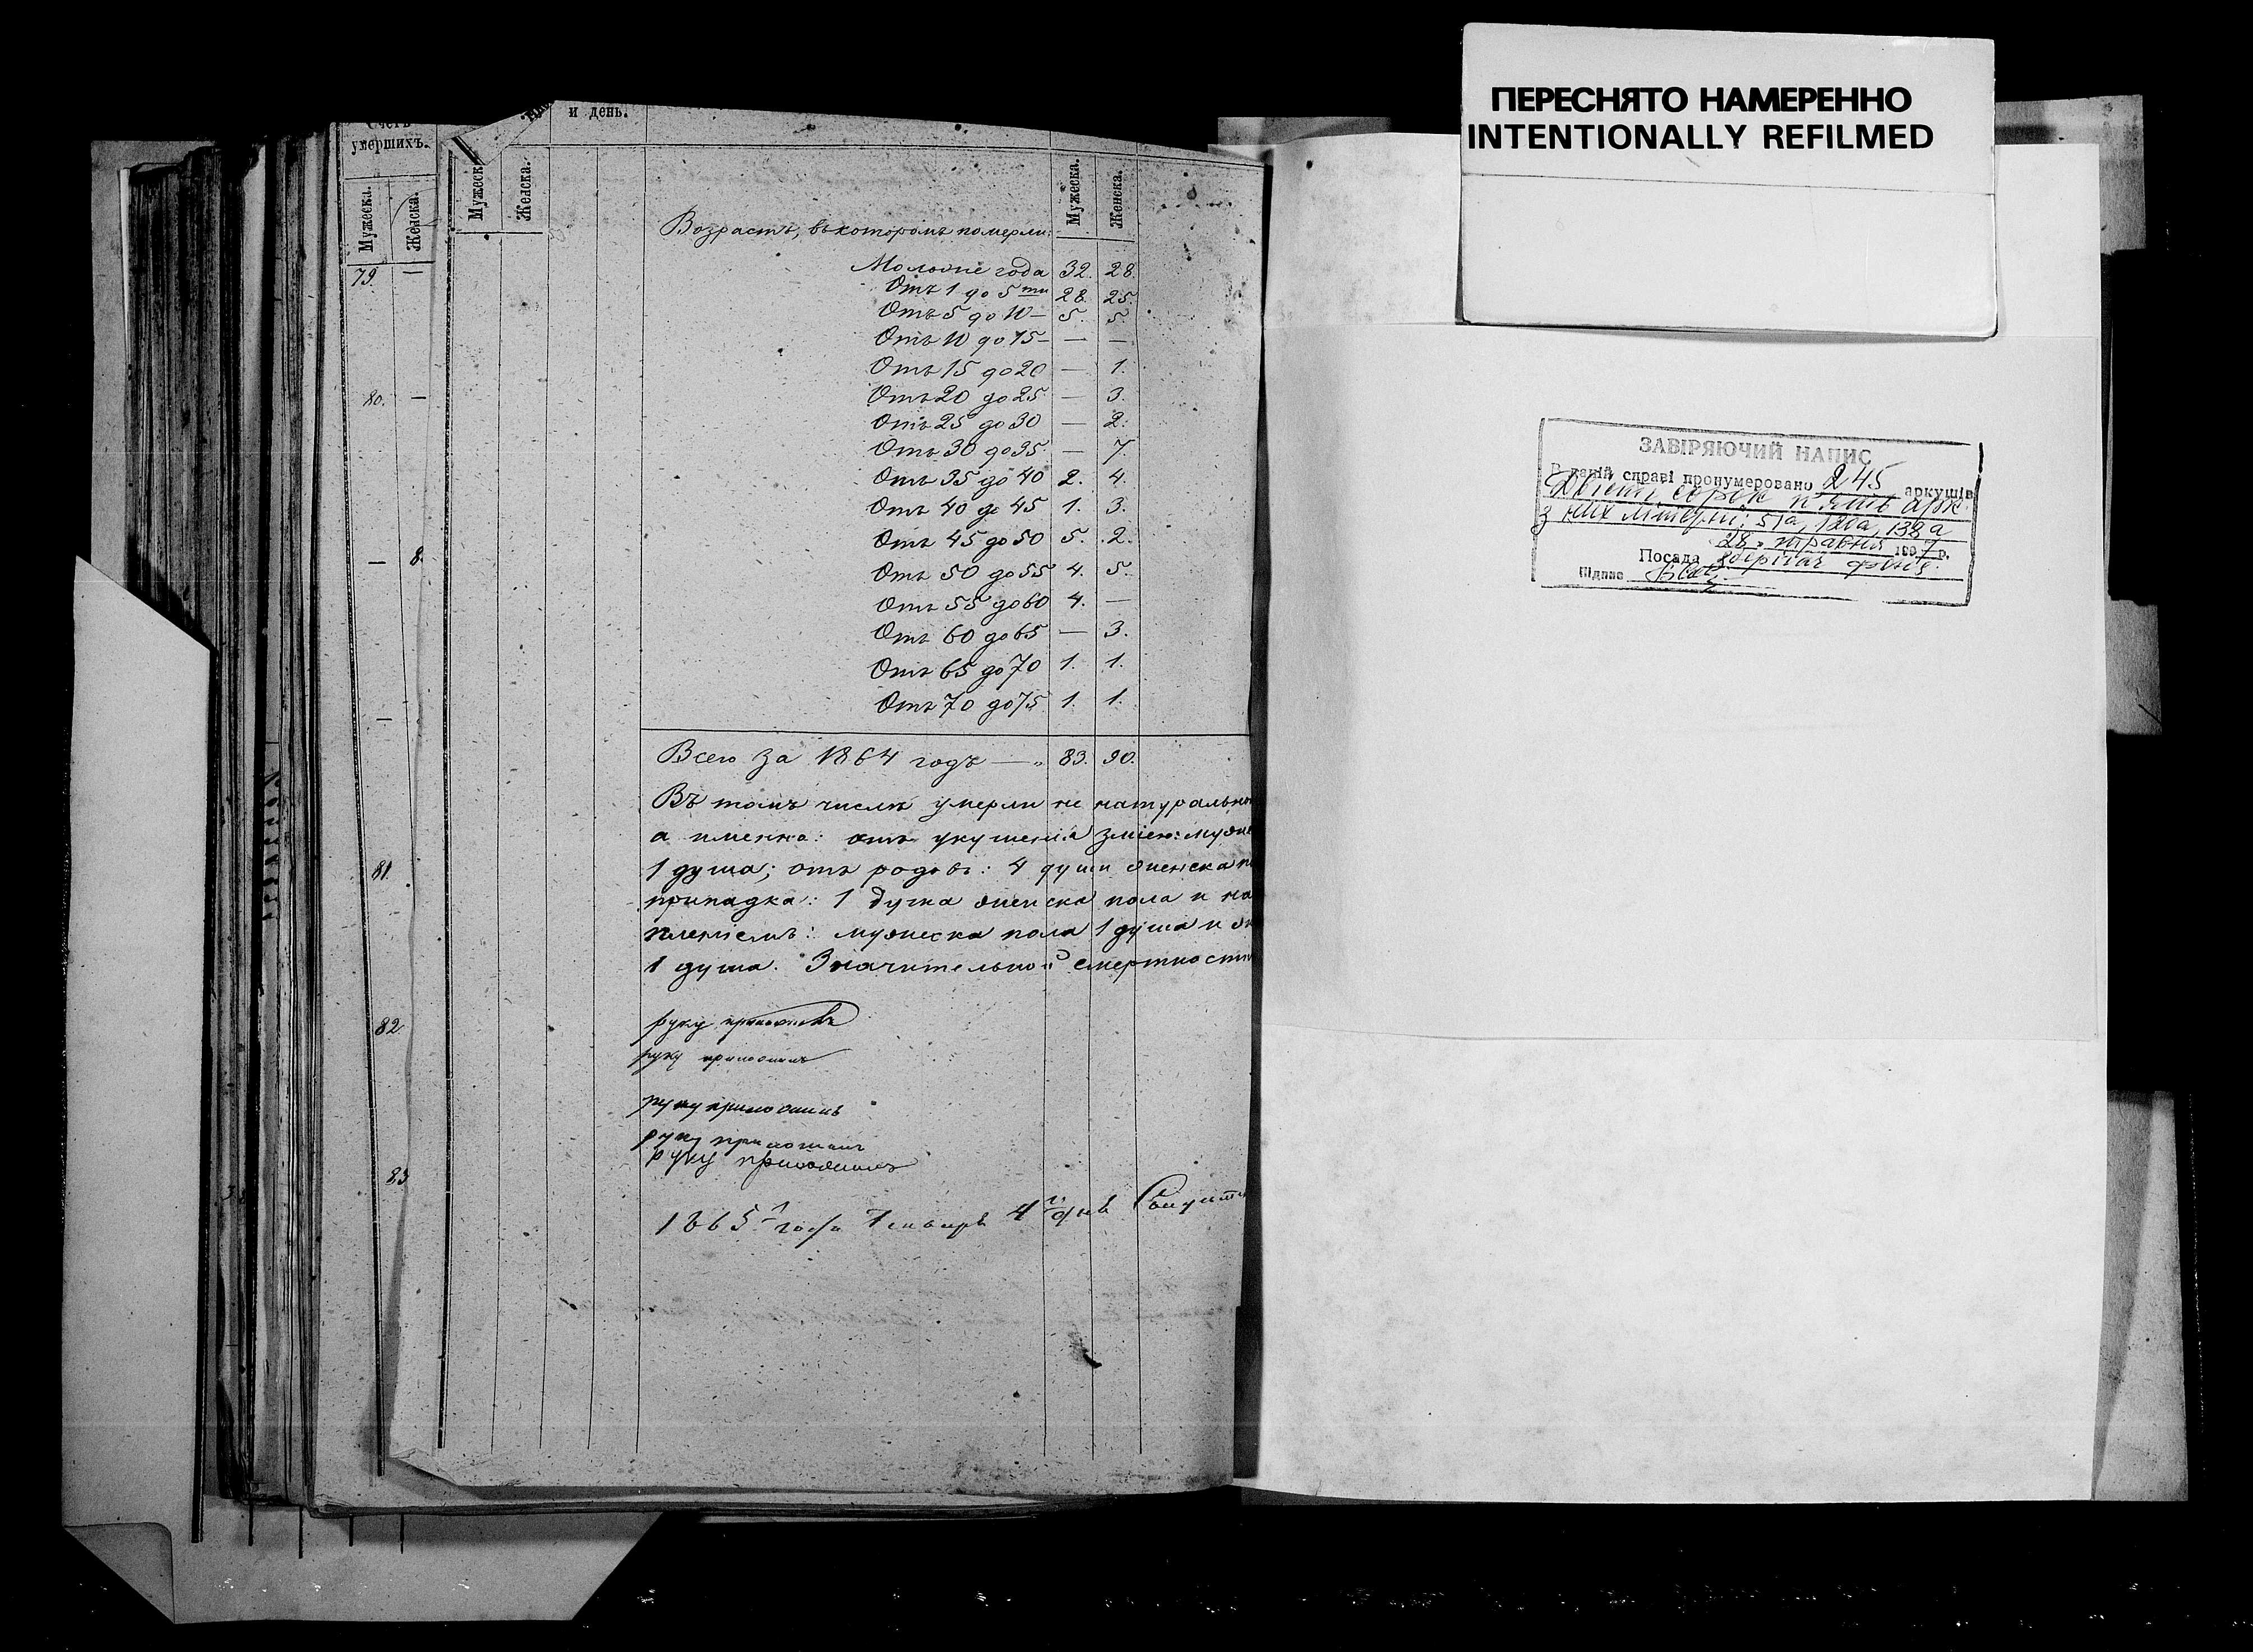 ПЕРЕСНЯТО НАМЕРЕННО
INTENTIONALLY REFILMED
умершихъ.
Мужеска. Женска.
79. —
80. —
— 8.
—
81.
82.
83
и день.
Мужеск Женска.
Мужеска. Женска.
Возрастъ, въ которомъ померли:
Моложе года 32. 28.
Отъ 1 до 5ти 28. 25.
Отъ 5 до 10 — 5. 5.
Отъ 10 до 15 — — —
Отъ 15 до 20 — 1.
Отъ 20 до 25 — 3.
Отъ 25 до 30 — 2.
Отъ 30 до 35 — 7.
Отъ 35 до 40 2. 4.
Отъ 40 до 45 1. 3.
Отъ 45 до 50 5. 2.
Отъ 50 до 55 4. 5.
Отъ 55 до 60 4. —
Отъ 60 до 65 — 3.
Отъ 65 до 70 1. 1.
Отъ 70 до 75 1. 1.
Всего за 1864 годъ — „ 83. 90.
Въ томъ числѣ умерли не натурально
а именно: отъ укушенія зміею: муже
1 душа; отъ родовъ: 4 души женска п
припадка: 1 душа женска пола и на
мужеска пола 1 душа и ж
1 душа. Значительной смертности
руку приложилъ
руку приложилъ
руку приложилъ
руку приложилъ
руку приложилъ
1865 года Января 4 дня
ЗАВІРЯЮЧИЙ НАПИС
В даній справі пронумеровано 245 аркушів
Двісті сорок п'ять арк.
з них літерні: 51а, 120а, 138а
28 травня 1997 р.
Посада зберігач фондів
Підпис